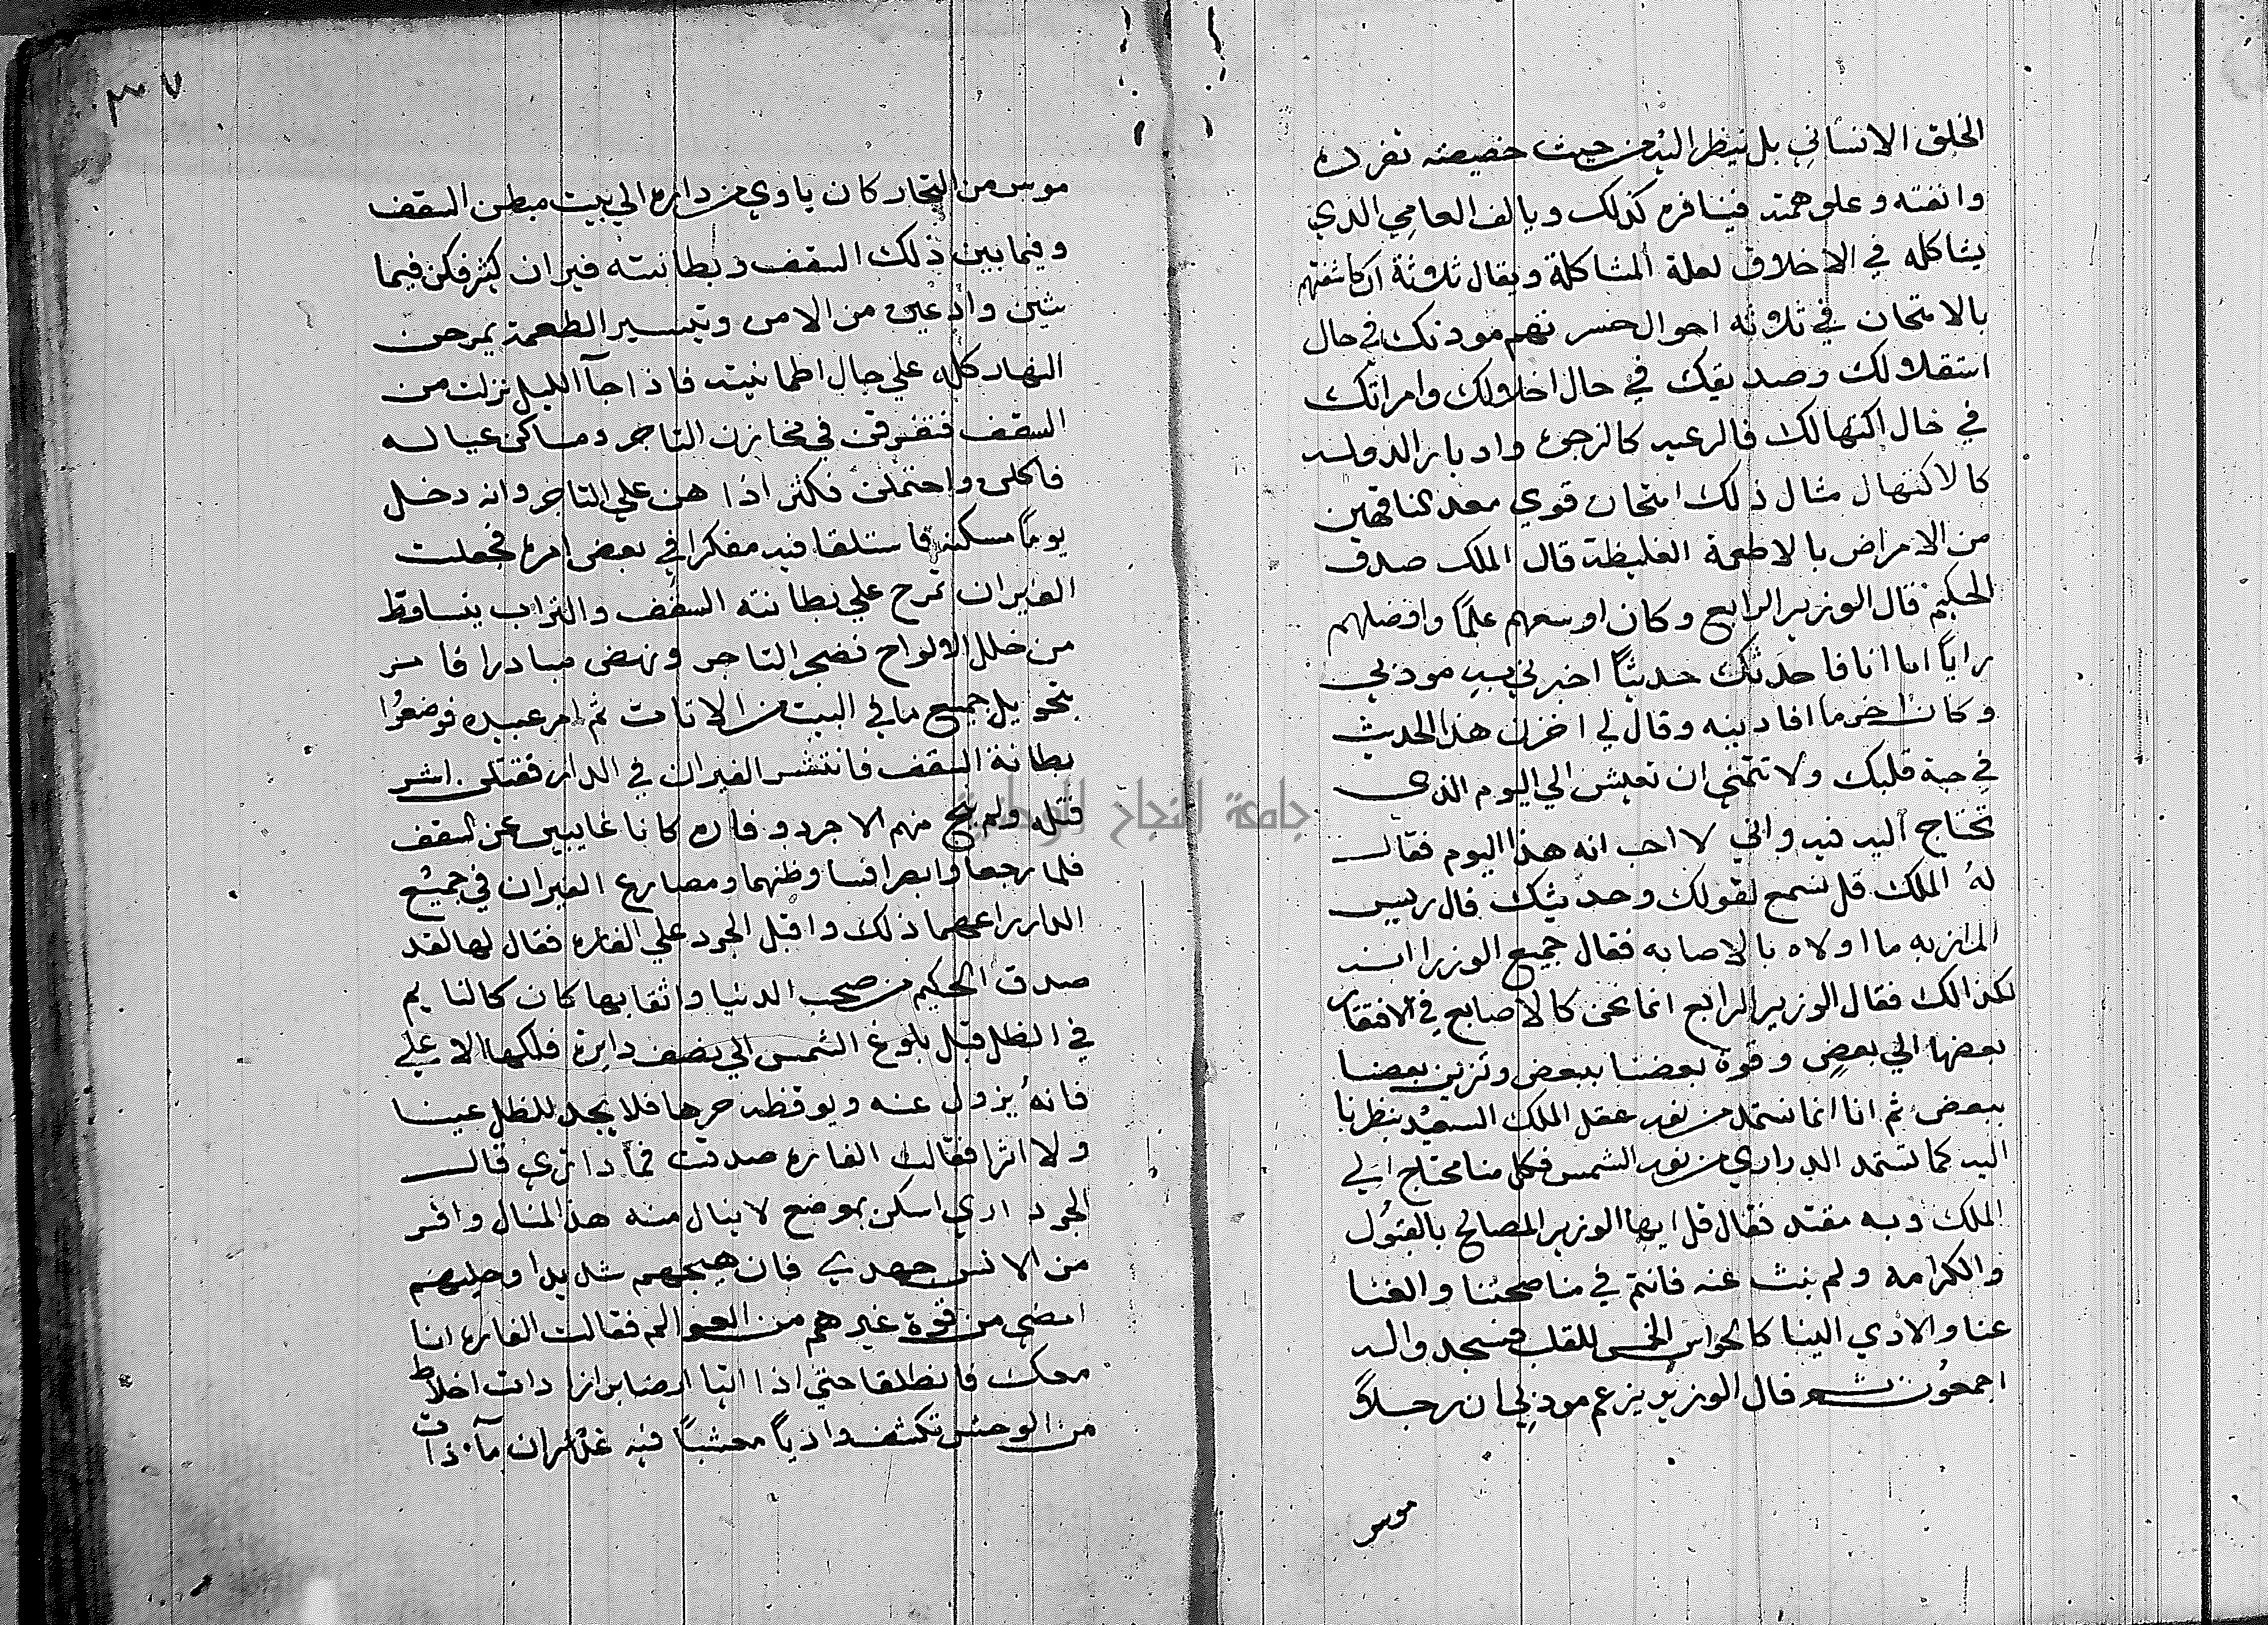 الخلق الانساني بل ينظر اليه من حيث خصيصته تفرده
وانفته وعلو همته فينافره كذلك ويالف العامي الذي
يشاكله في الاخلاق لعلة المشاكلة ويقال ثلاثة ان كاشفتهم
بالامتحان في ثلاثه احوال خسرتهم مودتك في حال
استقلالك وصديقك في حال اخلالك وامراتك
في حال اكتهالك فالرعيه كالزوجة وادبار الدولة
كالاكتهال مثال ذلك امتحان قوي معد الناقهين
من الامراض بالاطعمة الغليظة قال الملك صدق
الحكيم قال الوزير الرابع وكان اوسعهم علمًا وافضلهم
راياً اما انا فاحدثك حديثاً اخبرني به مودبي
وكان اخر ما افادنيه وقال لي اخزن هذا الحديث
في حبة قلبك ولا تتمني ان تعيش الي اليوم الذي
تحتاج اليه فيه واني لا احب انه هذا اليوم فقال
له الملك قل نسمع لقولك وحديثك قال رييس
المازبه ما اولاه بالاصابه فقال جميع الوزرا انه
لكذالك فقال الوزير الرابع انما نحن كالاصابع في الافتقار
بعضها الي بعض وقوة بعضنا ببعض وتزين بعضنا
ببعض ثم انا انما نستمد من نور عقل الملك السعيد بنظرنا
اليه كما تستمد الدراري من نور الشمس فكل منا محتاج الي
الملك وبه مقتد فقال قل ايها الوزير الصالح بالقبول
والكرامه ولم ننث عنه فانتم في مناصحتنا والغنا
عنا والادي الينا كالحواس الخمس للقلب فسجد واله
اجمعون ثم قال الوزير يزعم مودبي ان رجلاً
موسر
٣٧
موسر من التجار كان ياوي من داره الي بيت مبطن السقف
وفيما بين ذلك السقف وبطانته فيران كثر فكن فيما
شين وادعين من الامن وتيسير الطعمة يمرحن
النهار كله علي حال اطمانينه فاذا جآ الليل نزلت من
السقف فتفرقن في مخازن التاجر ومساكن عياله
فاكلن واحتملن فكثر اذا هن علي التاجر وانه دخل
يوماً مسكنه فاستلقا فيه مفكرا في بعض امره فجعلت
الفيران تمرح علي بطانته السقف والتراب يتساقط
من خلل الالواح فضجر التاجر ونهض مبادرا فامر
بتحويل جميع ما في البيت من الاثاث ثم امر عبيده فوضعوا
بطانة السقف فانتشر الفيران في الدار فقتلن اشر
قتله ولم ينج منهم الا جرد وفاره كانا غايبين عن السقف
فلما رجعا وابصرا فسا وطنهما ومصارع الفيران في جميع
الدار راعهما ذلك واقبل الجرد علي الفاره فقال لها لقد
صدق الحكيم من صحب الدنيا واثقا بها كان كالنايم
في الظل قبل بلوغ الشمس الي نصف دايرة فلكها الاعلي
فانه يزول عنه ويوقظه حرها فلا يجد للظل عينا
ولا اثرا فقالت الفاره صدقت فما ذا تري قال
الجرد اري اسكن بموضع لا ينال منه هذا المنال وافر
من الانس جهدي فان هيجهم شديدا وحيلهم
امضي من قوة غيرهم من العوالم فقالت الفاره انا
معك فانطلقا حتي اذا اتيا ارضا برازا ذات اخلاط
من الوحش تكشف واديا معشباً فيه غدران مآ ذات
جامعة النجاح الوطنية